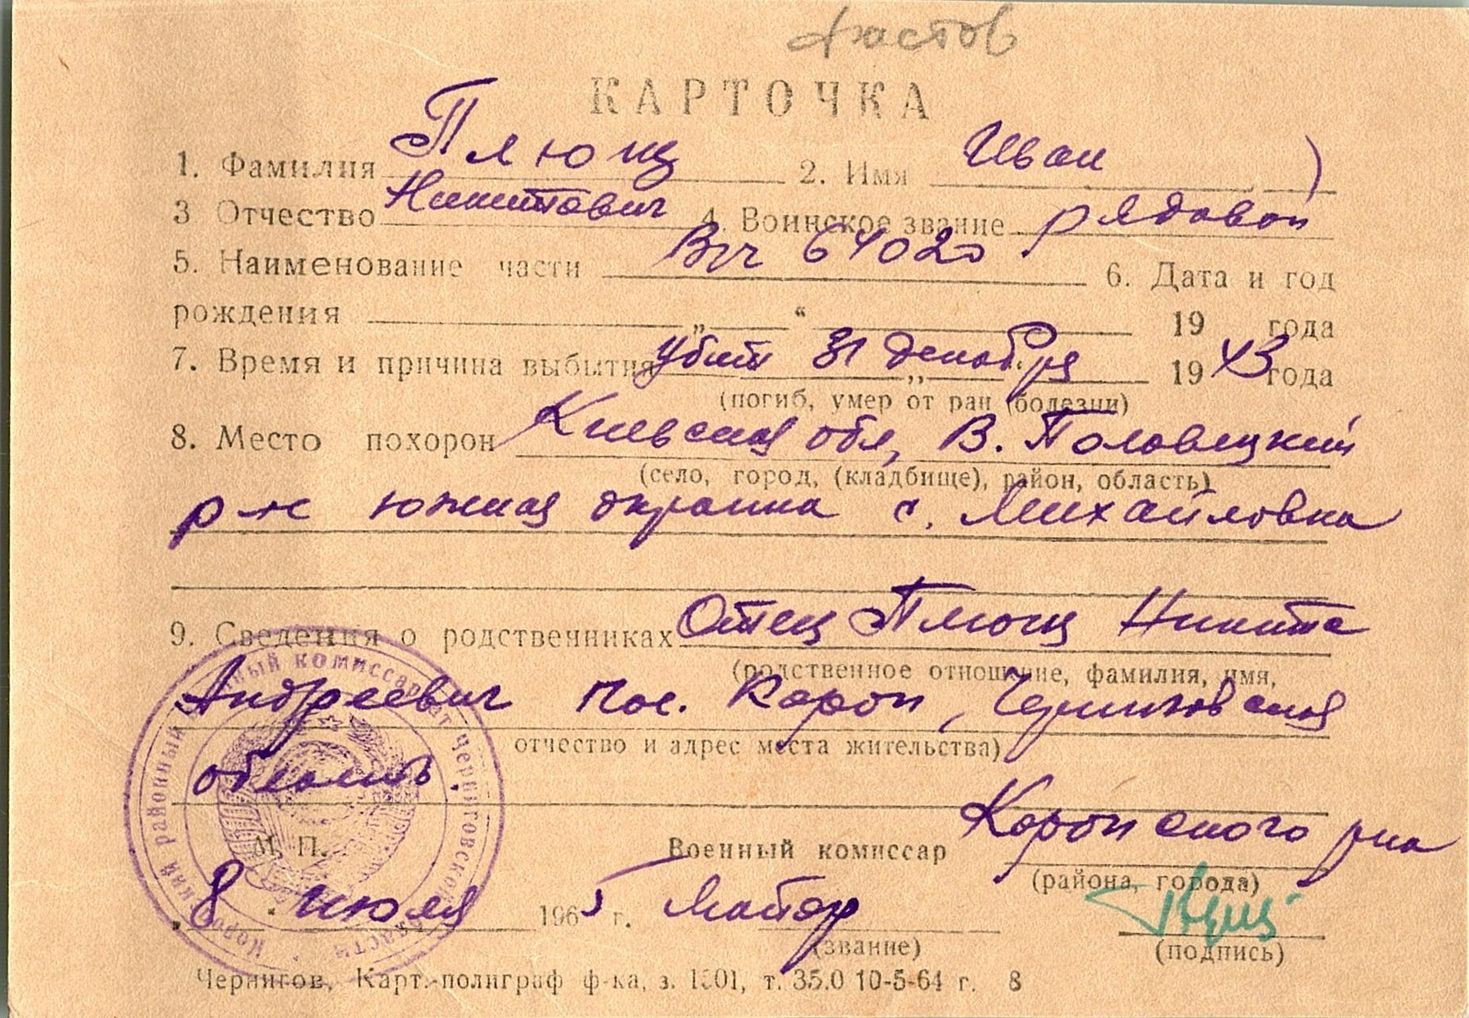 Фастов
КАРТОЧКА
1. Фамилия Плющ 2. Имя Иван
3 Отчество Никитович 4. Воинское звание рядовой
5. Наименование части В/ч 64020 6. Дата и год
рождения „ “ 19 года
7. Время и причина выбытия убит 31 декабря 1943 года
(погиб, умер от ран (болезни)
8. Место похорон Киевская обл, В. Половецкий
(село, город, (кладбище), район, область)
р-н южная окраина с. Михайловка
9. Сведения о родственниках Отец Плющ Никита
(родственное отношение, фамилия, имя,
Андреевич пос. Короп, Черниговская
отчество и адрес места жительства)
область.
М. П. Военный комиссар Коропского р-на
(района, города)
8 июля 1965 г. Майор
(звание) (подпись)
Чернигов, Карт.-полиграф ф-ка, з. 1501, т. 35.0 10-5-64 г. 8
Коропский районный военный комиссариат Черниговской области